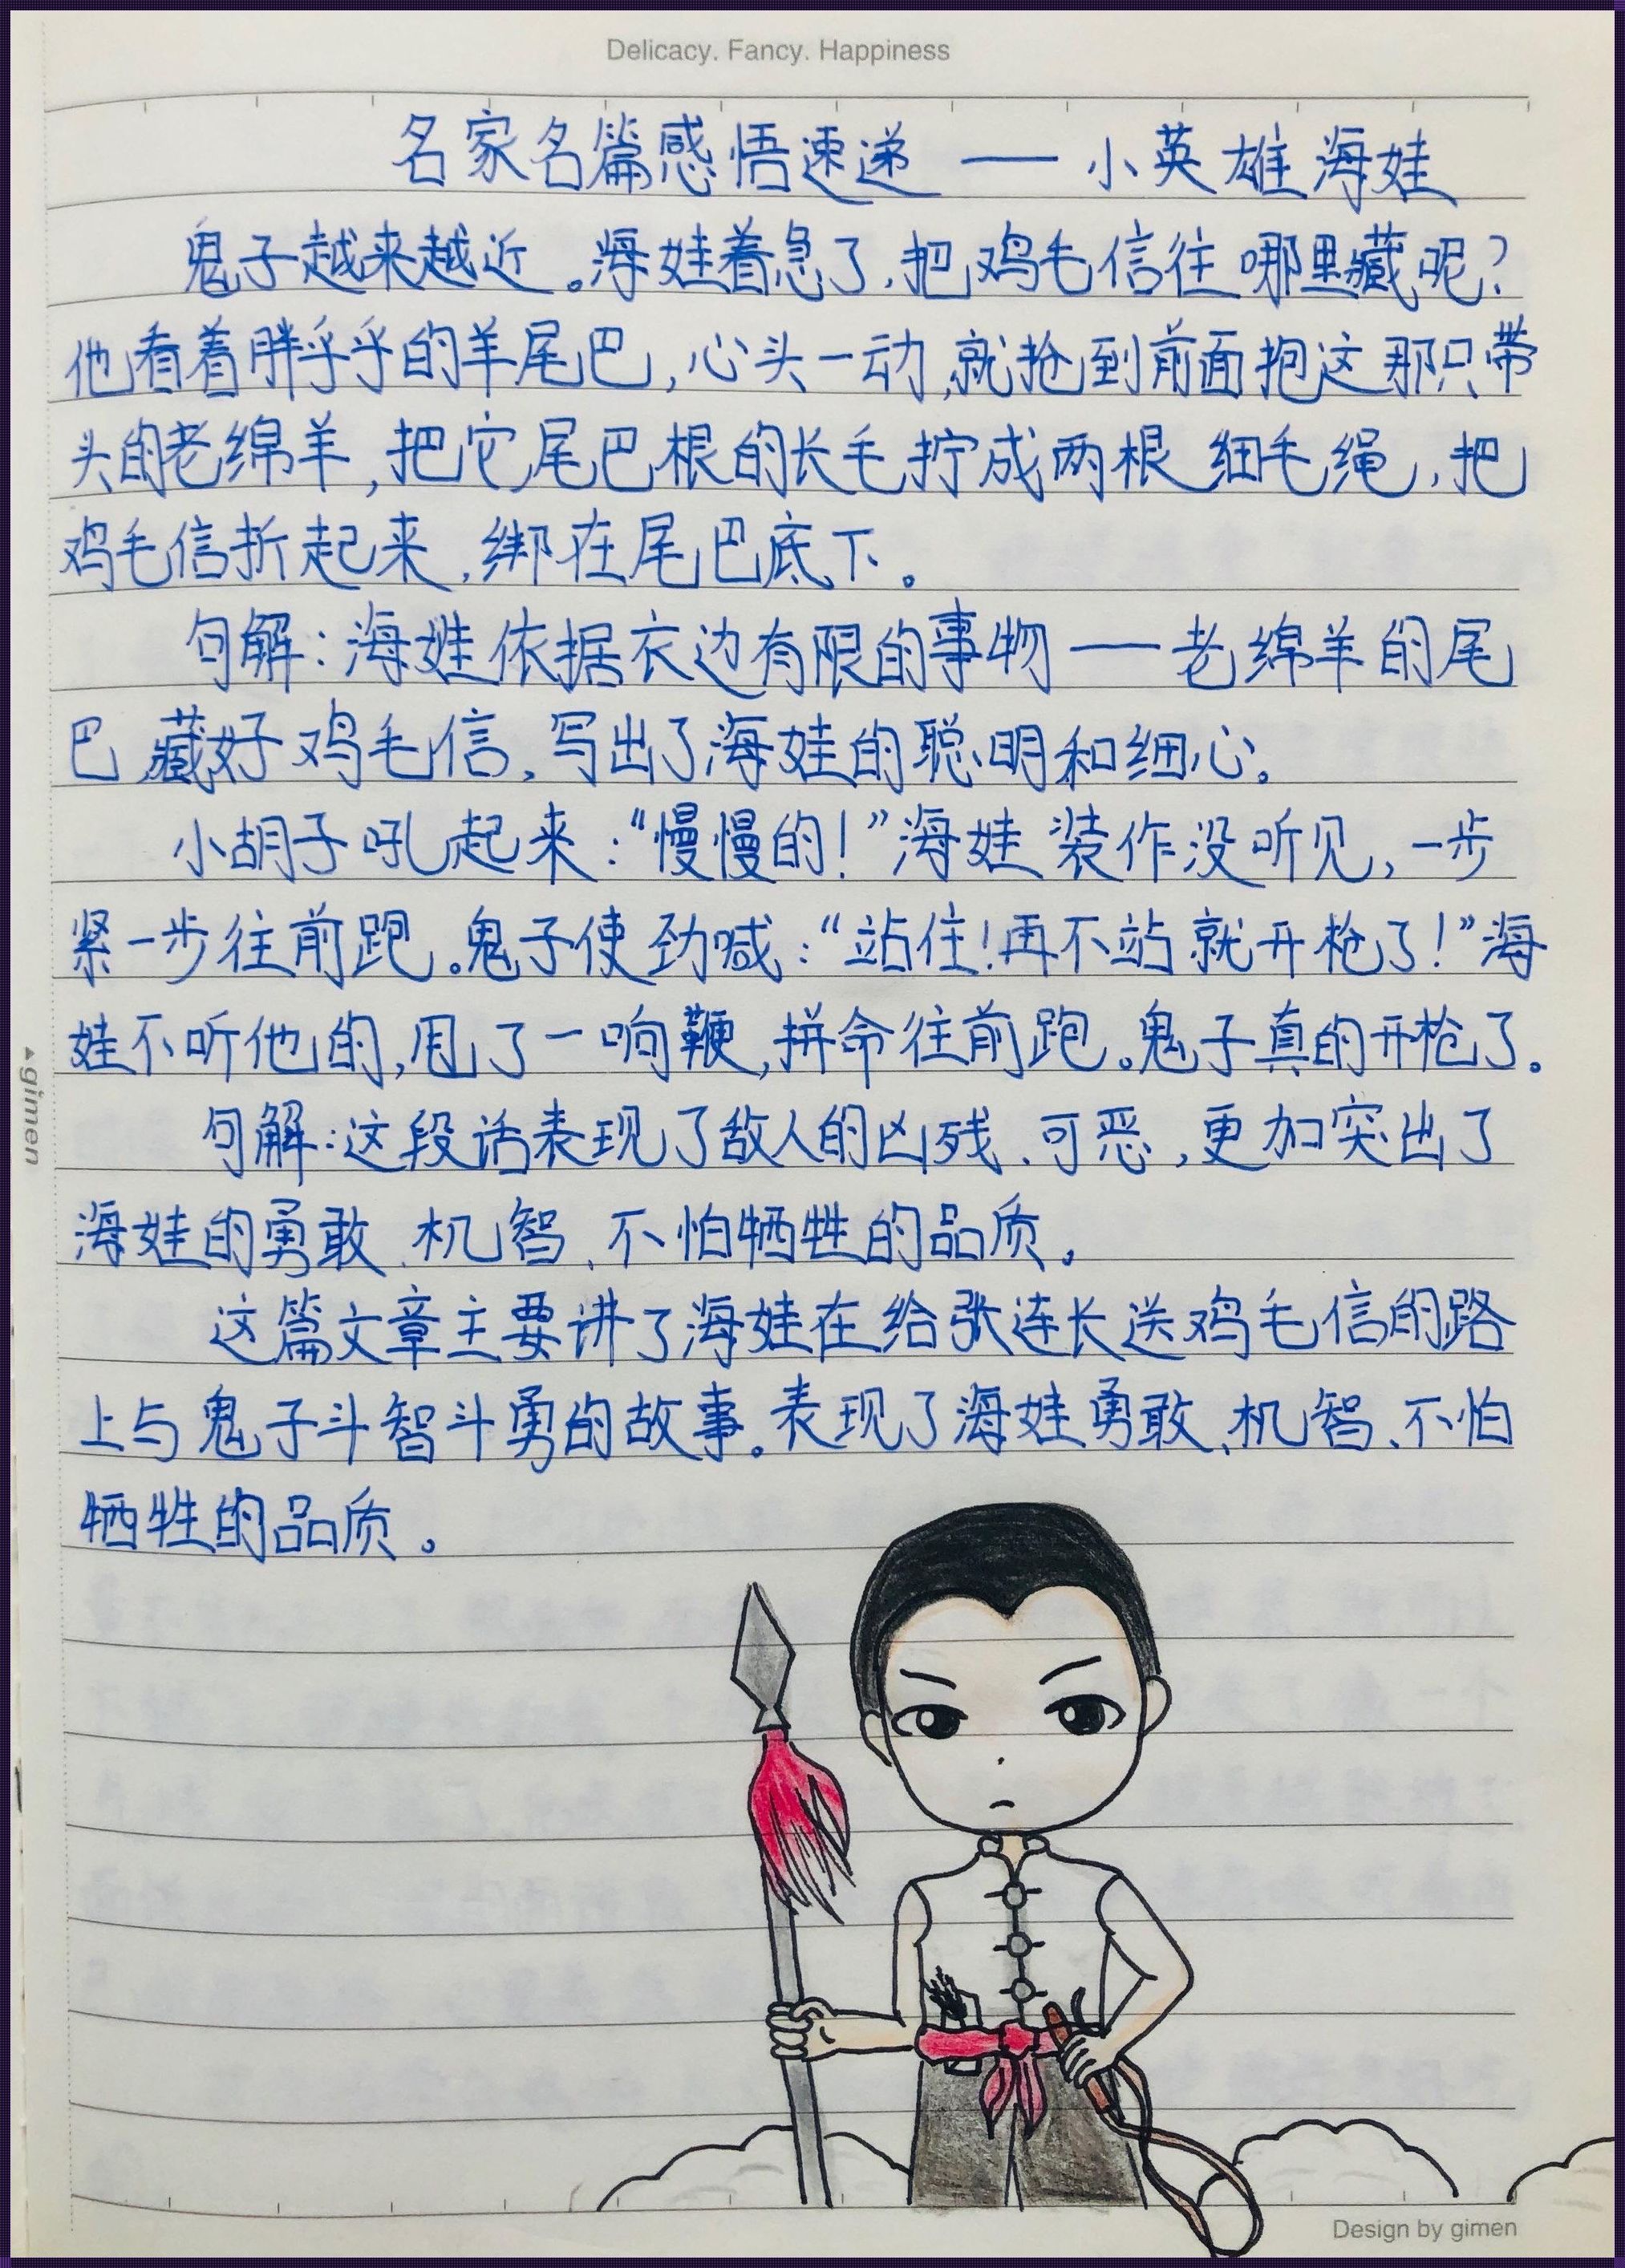 Delicacy. Fancy. Happiness
名家名篇感悟速递——小英雄海娃
鬼子越来越近。海娃着急了,把鸡毛信往哪里藏呢?
他看着胖乎乎的羊尾巴,心头一动,就抢到前面抱这那只带
头的老绵羊,把它尾巴根的长毛拧成两根细毛绳,把
鸡毛信折起来,绑在尾巴底下。
句解:海娃依据衣边有限的事物——老绵羊的尾
巴藏好鸡毛信,写出了海娃的聪明和细心。
小胡子吼起来:“慢慢的!”海娃装作没听见,一步
紧一步往前跑。鬼子使劲喊:“站住!再不站就开枪了!”海
娃不听他的,甩了一响鞭,拼命往前跑。鬼子真的开枪了。
句解:这段话表现了敌人的凶残、可恶,更加突出了
海娃的勇敢、机智、不怕牺牲的品质。
这篇文章主要讲了海娃在给张连长送鸡毛信的路
上与鬼子斗智斗勇的故事。表现了海娃勇敢、机智、不怕
牺牲的品质。
gimen
Design by gimen